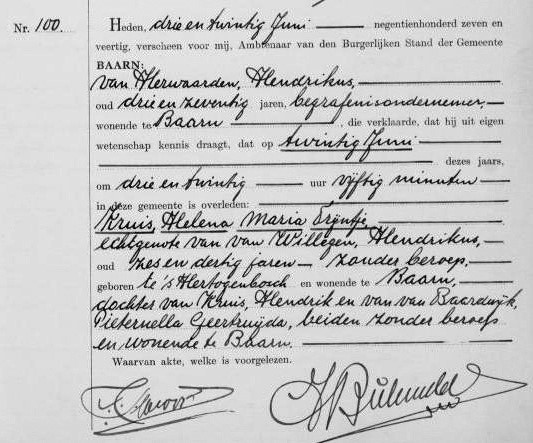 Nr. 100.
Heden, drie en twintig Juni negentienhonderd zeven en
veertig, verscheen voor mij, Ambtenaar van den Burgerlijken Stand der Gemeente
BAARN:
van Herwaarden, Hendrikus,
oud drie en zeventig jaren, begrafenisondernemer,
wonende te Baarn, die verklaarde, dat hij uit eigen
wetenschap kennis draagt, dat op twintig Juni
dezes jaars,
om drie en twintig uur vijftig minuten
in deze gemeente is overleden:
Kruis, Helena Maria Trijntje,
echtgenote van van Willegen, Hendrikus,
oud zes en dertig jaren zonder beroep,
geboren te 's Hertogenbosch en wonende te Baarn,
dochter van Kruis, Hendrik en van van Baardwijk,
Pieternella Geertruijda, beiden zonder beroep
en wonende te Baarn.
Waarvan akte, welke is voorgelezen.